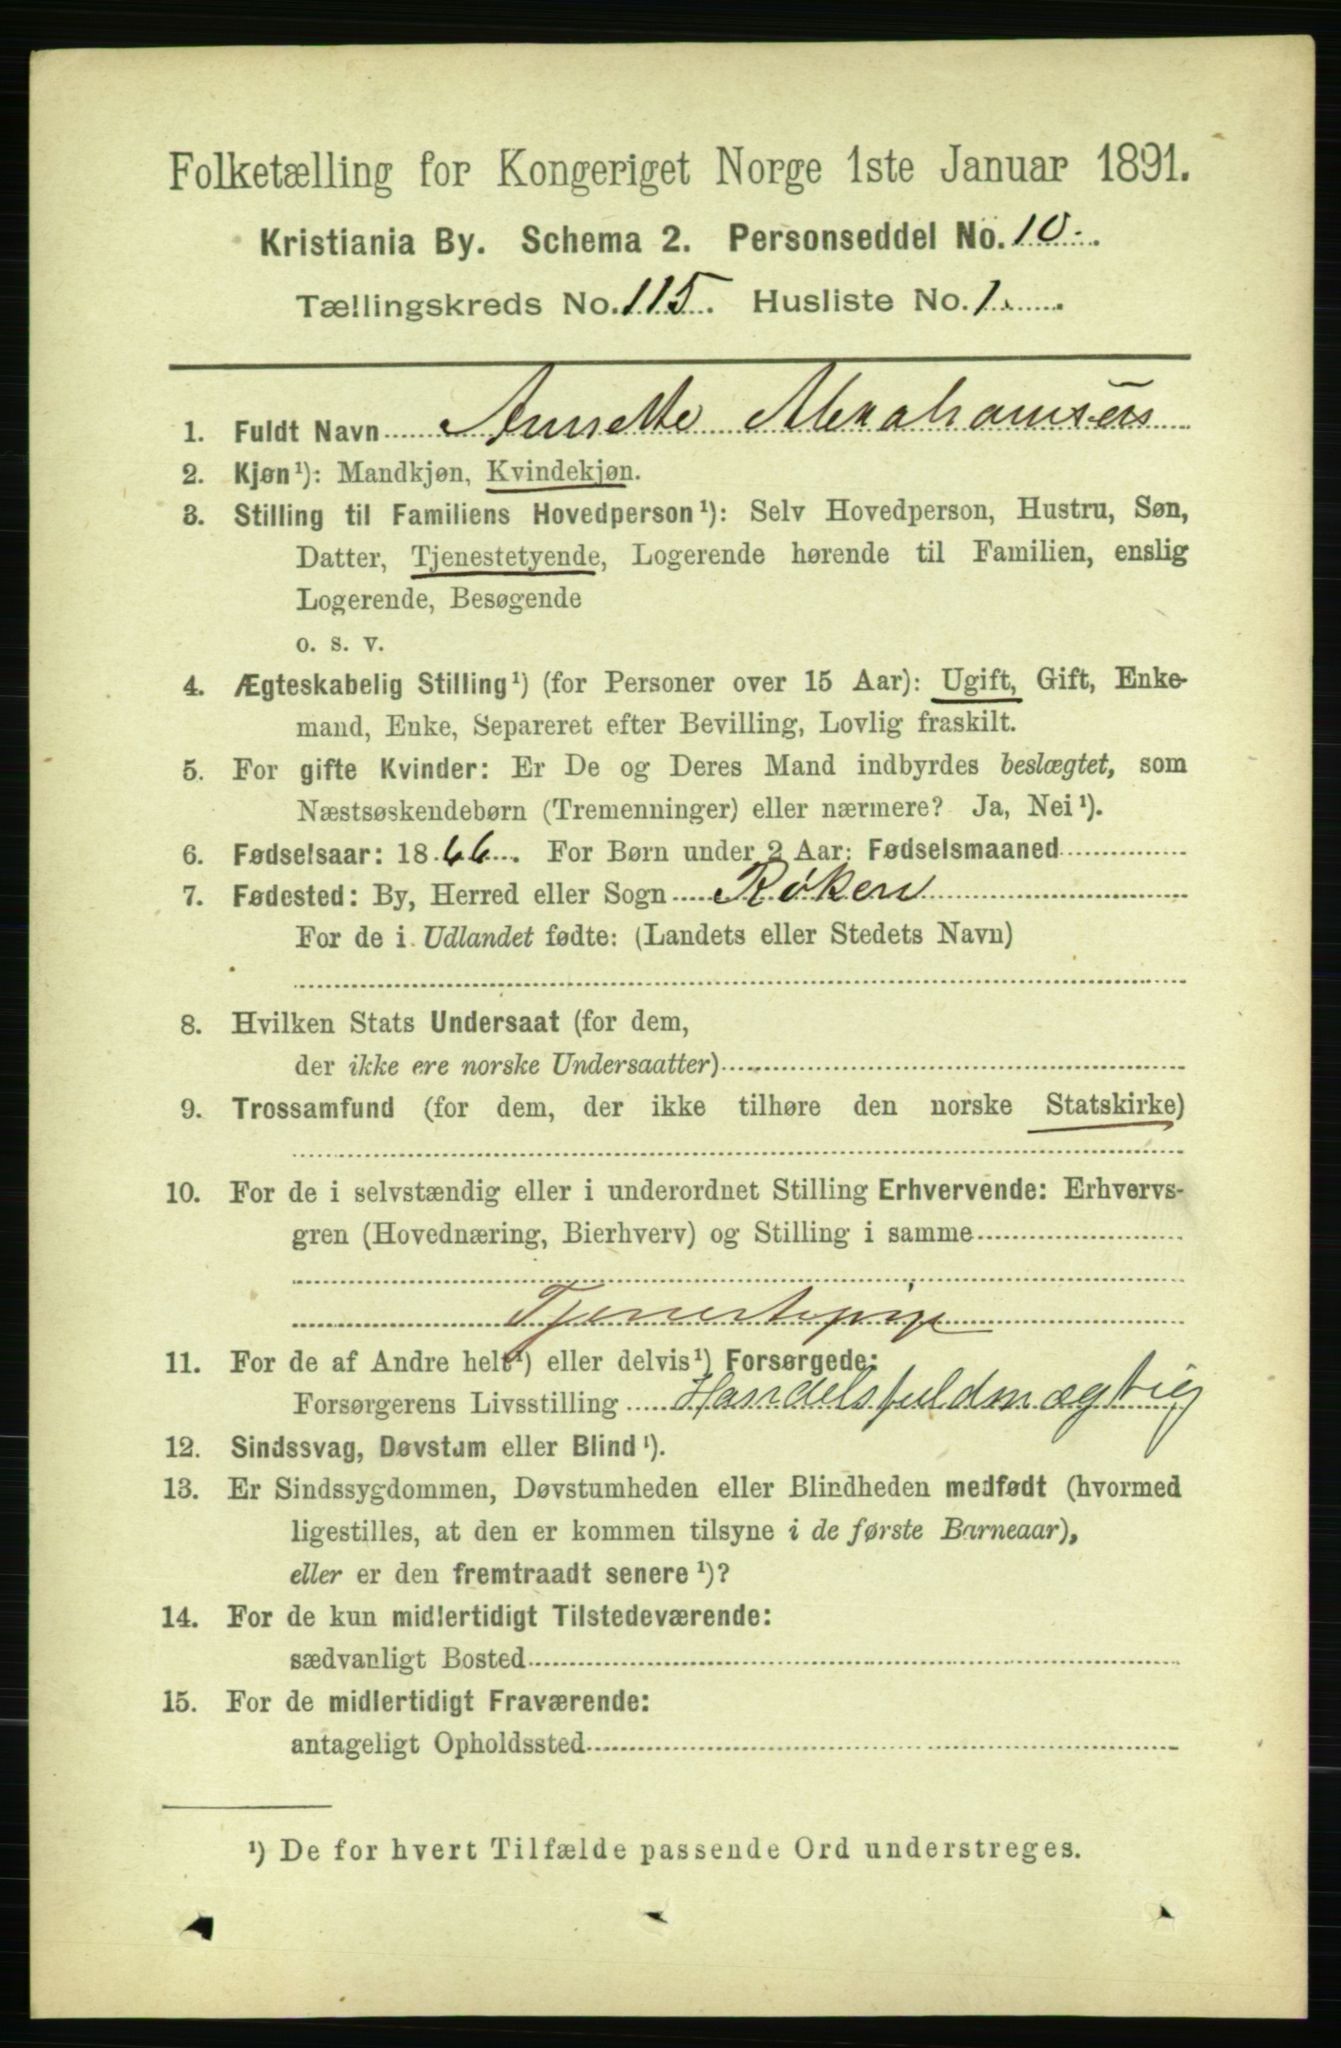 Folketælling for Kongeriget Norge 1ste Januar 1891.
Kristiania By. Schema 2. Personseddel No. 10.
Tællingskreds No. 115. Husliste No. 1.
1. Fuldt Navn Annette Abrahamsen
2. Kjøn¹): Mandkjøn, Kvindekjøn.
3. Stilling til Familiens Hovedperson¹): Selv Hovedperson, Hustru, Søn,
Datter, Tjenestetyende, Logerende hørende til Familien, enslig
Logerende, Besøgende
o. s. v.
4. Ægteskabelig Stilling¹) (for Personer over 15 Aar): Ugift, Gift, Enke-
mand, Enke, Separeret efter Bevilling, Lovlig fraskilt.
5. For gifte Kvinder: Er De og Deres Mand indbyrdes beslægtet, som
Næstsøskendebørn (Tremenninger) eller nærmere? Ja, Nei¹).
6. Fødselsaar: 1866. For Børn under 2 Aar: Fødselsmaaned
7. Fødested: By, Herred eller Sogn Røken
For de i Udlandet fødte: (Landets eller Stedets Navn)
8. Hvilken Stats Undersaat (for dem,
der ikke ere norske Undersaatter)
9. Trossamfund (for dem, der ikke tilhøre den norske Statskirke)
10. For de i selvstændig eller i underordnet Stilling Erhvervende: Erhvervs-
gren (Hovednæring, Bierhverv) og Stilling i samme
Tjenestepige
11. For de af Andre helt¹) eller delvis¹) Forsørgede:
Forsørgerens Livsstilling Handelsfuldmægtig
12. Sindssvag, Døvstum eller Blind¹).
13. Er Sindssygdommen, Døvstumheden eller Blindheden medfødt (hvormed
ligestilles, at den er kommen tilsyne i de første Barneaar),
eller er den fremtraadt senere¹)?
14. For de kun midlertidigt Tilstedeværende:
sædvanligt Bosted
15. For de midlertidigt Fraværende:
antageligt Opholdssted
¹) De for hvert Tilfælde passende Ord understreges.